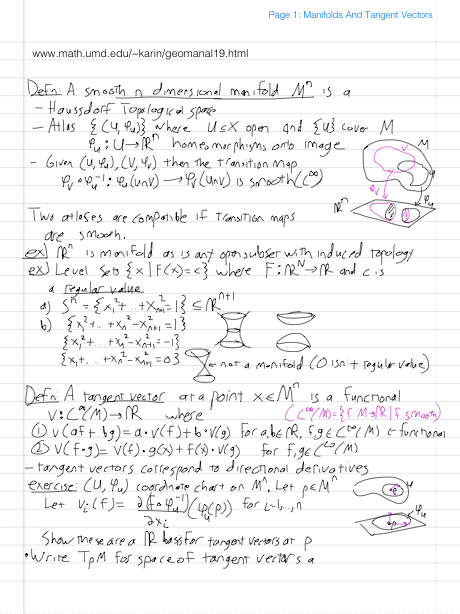 Page 1: Manifolds And Tangent Vectors
www.math.umd.edu/~karin/geomanal19.html
Defn: A smooth n dimensional manifold Mⁿ is a
- Haussdorf Topological space
- Atlas {(U, φᵤ)} where U⊆X open and {U} cover M
φᵤ: U→ℝⁿ homeomorphisms onto image
- Given (U, φᵤ), (V, φᵥ) then the transition map
φᵥ∘φᵤ⁻¹: φᵤ(U∩V) → φᵥ(U∩V) is smooth (C^∞)
M
φᵥ
φᵤ
ℝⁿ
Two atlases are compatible if transition maps
are smooth.
ex) ℝⁿ is manifold as is any open subset with induced topology
ex) Level sets {x | F(x)=c} where F: ℝᴺ→ℝ and c is
a regular value
a) Sⁿ = {x₁²+..+xₙ₊₁²=1} ⊆ ℝⁿ⁺¹
b) {x₁²+..+xₙ²-xₙ₊₁²=1}
{x₁²+..+xₙ²-xₙ₊₁²=-1}
{x₁+..+xₙ²-xₙ₊₁²=0} ← not a manifold (0 isn't regular value)
Defn: A tangent vector at a point x∈Mⁿ is a functional
v: C^∞(M)→ℝ where (C^∞(M)={f: M→ℝ | f smooth})
① v(af+bg)=a·v(f)+b·v(g) for a,b∈ℝ, f,g∈C^∞(M) ← functional
② v(f·g)=v(f)·g(x)+f(x)·v(g) for f,g∈C^∞(M)
- tangent vectors correspond to directional derivatives
exercise: (U, φᵤ) coordinate chart on Mⁿ. Let p∈Mⁿ
Let vᵢ(f) = ∂(f∘φᵤ⁻¹)/∂xᵢ (φᵤ(p)) for i=1,..,n
φᵤ
Show these are a ℝ basis for tangent vectors at p
• Write TₚM for space of tangent vectors a